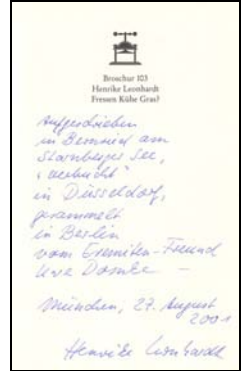 Broschur 103
Henrike Leonhardt
Fressen Kühe Gras?
Aufgeschrieben
in Bernried am
Starnberger See,
in Düsseldorf,
gesammelt
in Berlin
vom Eremiten-Freund
Uwe Domke –
München, 27. August
2001
Henrike Leonhardt